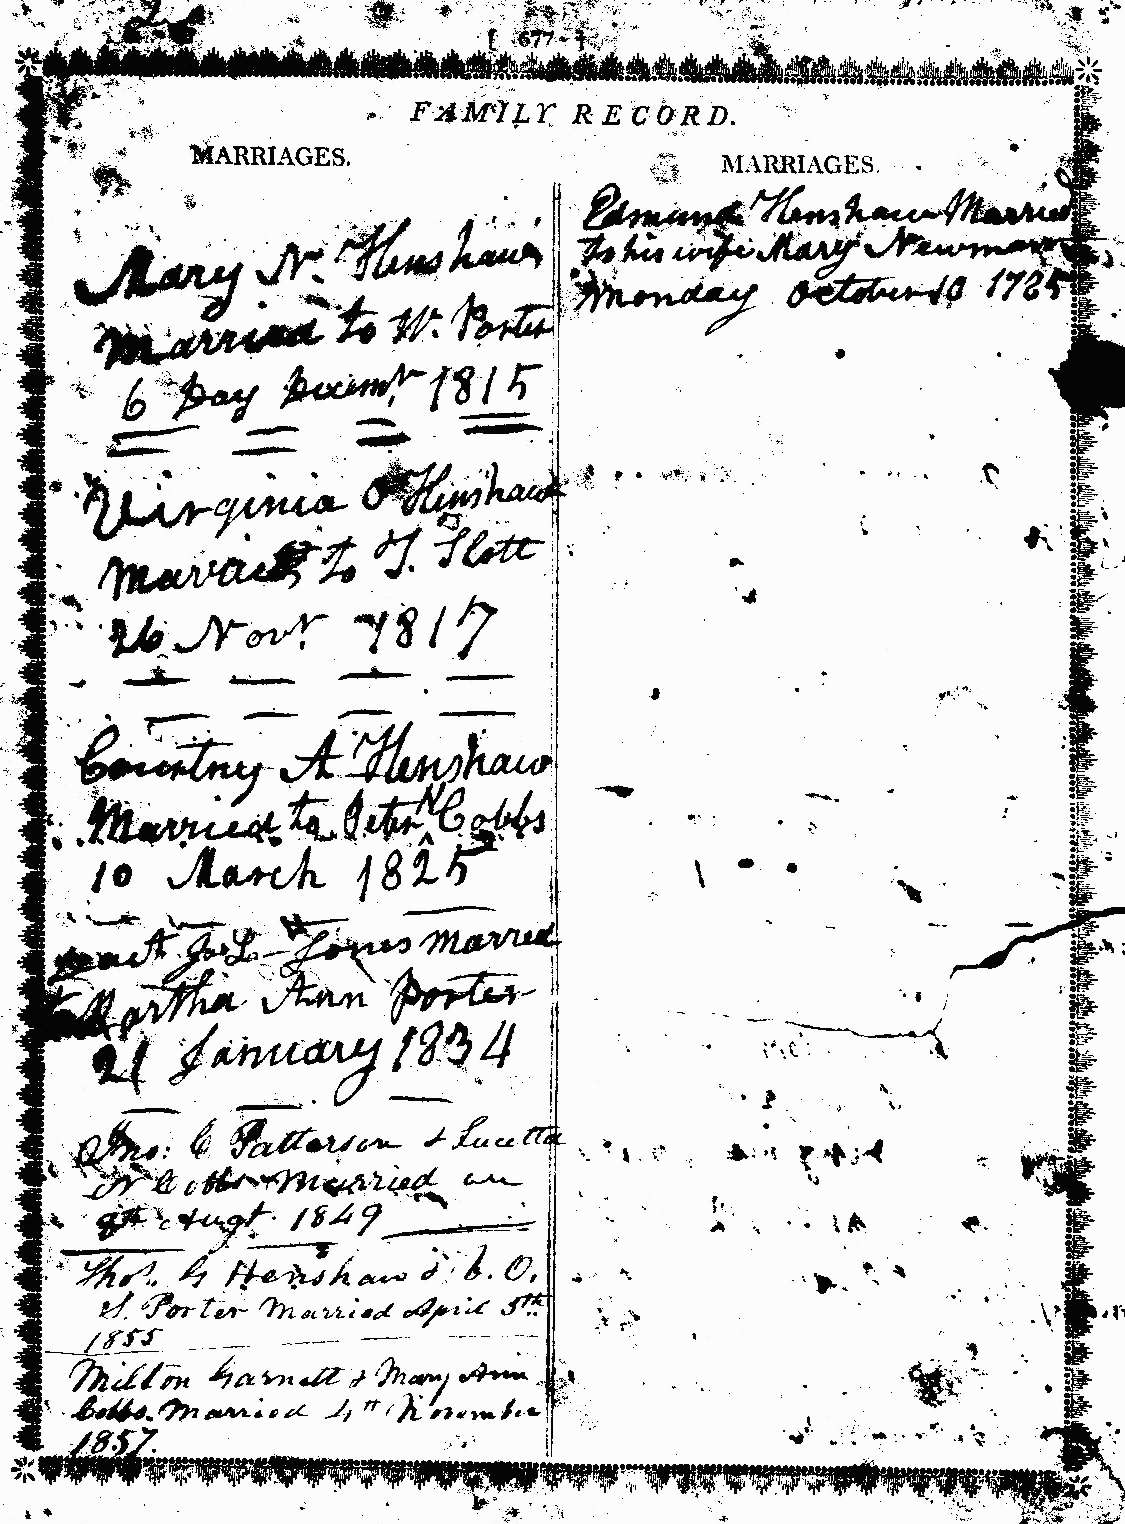 677
FAMILY RECORD.
MARRIAGES.
Mary N. Henshaw
Married to W. Porter
6 Day Decemr 1815
Virginia O Henshaw
Married to T. Slott
26 Novr. 1817
Courtney A Henshaw
Married to Peter N Cobbs
10 March 1825
Jas L Jones Marred
Martha Ann Porter
21 January 1834
Jno: C Patterson & Lucetta
N Cobbs Married on
8th Augt. 1849
Thos. G Henshaw & C. O.
S. Porter Married April 5th
1855
Milton Garnett & Mary Ann
Cobbs. Married 4th November
1857.
MARRIAGES.
Edmund Henshaw Married
To his wife Mary Newman
Monday October 10 1785